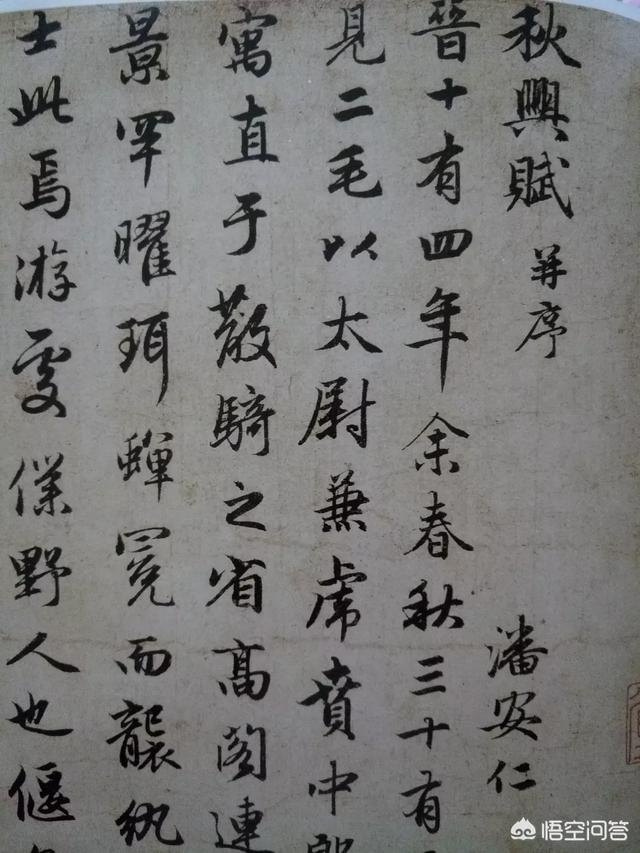 秋興賦 并序 潘安仁
晉十有四年余春秋三十有
見二毛以太尉兼虎賁中郎
寓直于散騎之省高閣連
景罕曜珥蟬冕而襲紈
士此焉游處僕野人也偃
悟空问答